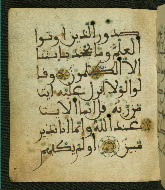 صدور الذين أوتوا
العلم وما يجحد بآياتنا
إلا الظالمون وقا
لوا لولا أنزل عليه
آيت من ربه قل إنما الآيت
عند الله وإنما أنا نذير
مبين أولم يكفهم